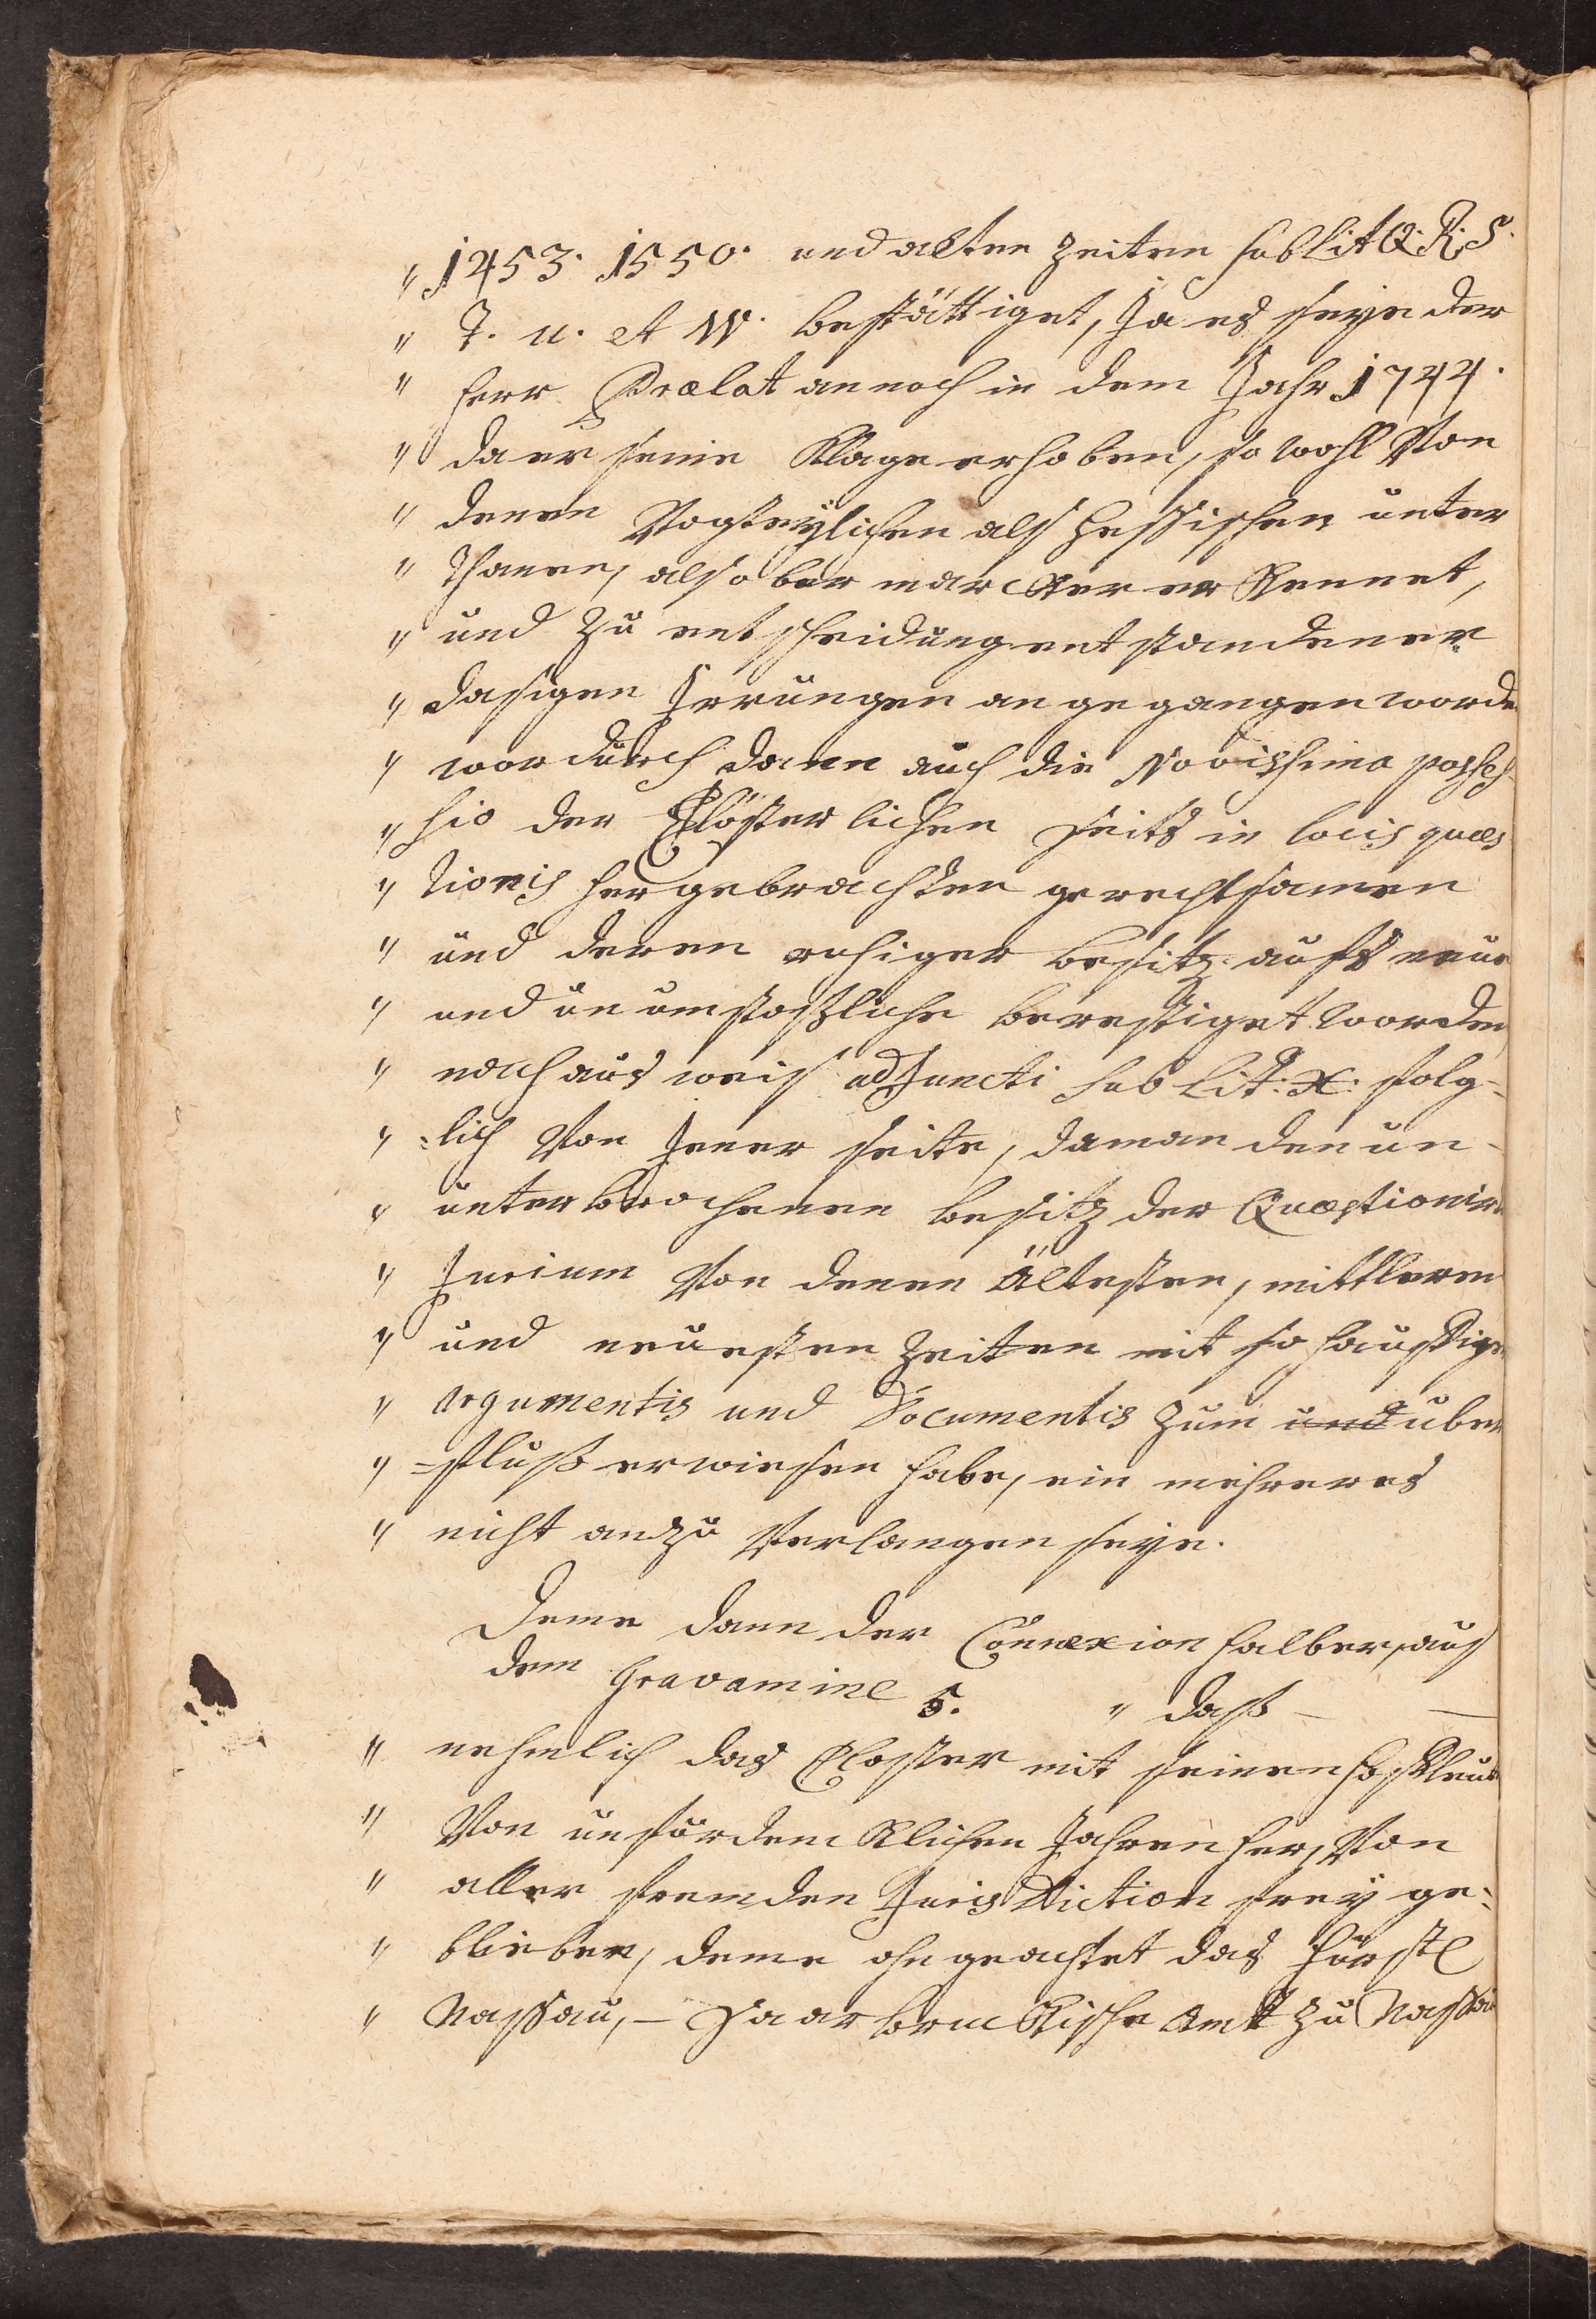 " 1453. 1550. und alten zeiten sub Lit Q. R. S.
" T. u. et W. bestättiget, Ja es seye der
" Herr Prælat annoch in dem Jahr 1744.
" da er seine Klage erhoben, so wohl Von
" denen Vogteylichen als Hessischen unter
" thanen, als ober marcker er Kennet,
" und zu entscheidung entstandener
" dasigen Irrungen an gegangen worde
" wordurch dann auch die Novissima posses
" sio der Clösterlichen seits in locis quæs
" tionis hergebrachten gerechtsamen
" und deren ruhiger besitz aufs neue
" und un umstoszliche berestiget worden
" nach ausweis adjuncti sub Lit: X: folg-
" =lich Von Jener seite, da man den un-
" unterbrochenen besitz der Quæstionir
" Jurium Von denen ältesten, mittleren
" und neuesten zeiten mit so häuffige
" argumentis und Documentis zum und uber
" =fluss erwiesen habe, ein mehreres
" nicht an zu Verlangen seye.
Deme dann der Connexion halber, aus
dem Gravamine 5. " dass —
" nehmlich das Closter mit seinen hoffleuten
" Von unfürdencklichen Jahren her, Von
" aller fremden Jurisdiction frey ge=
" blieben, deme ohngeachtet das fürstl
" Nassau, – Saarbruckische Amt zu Nassau